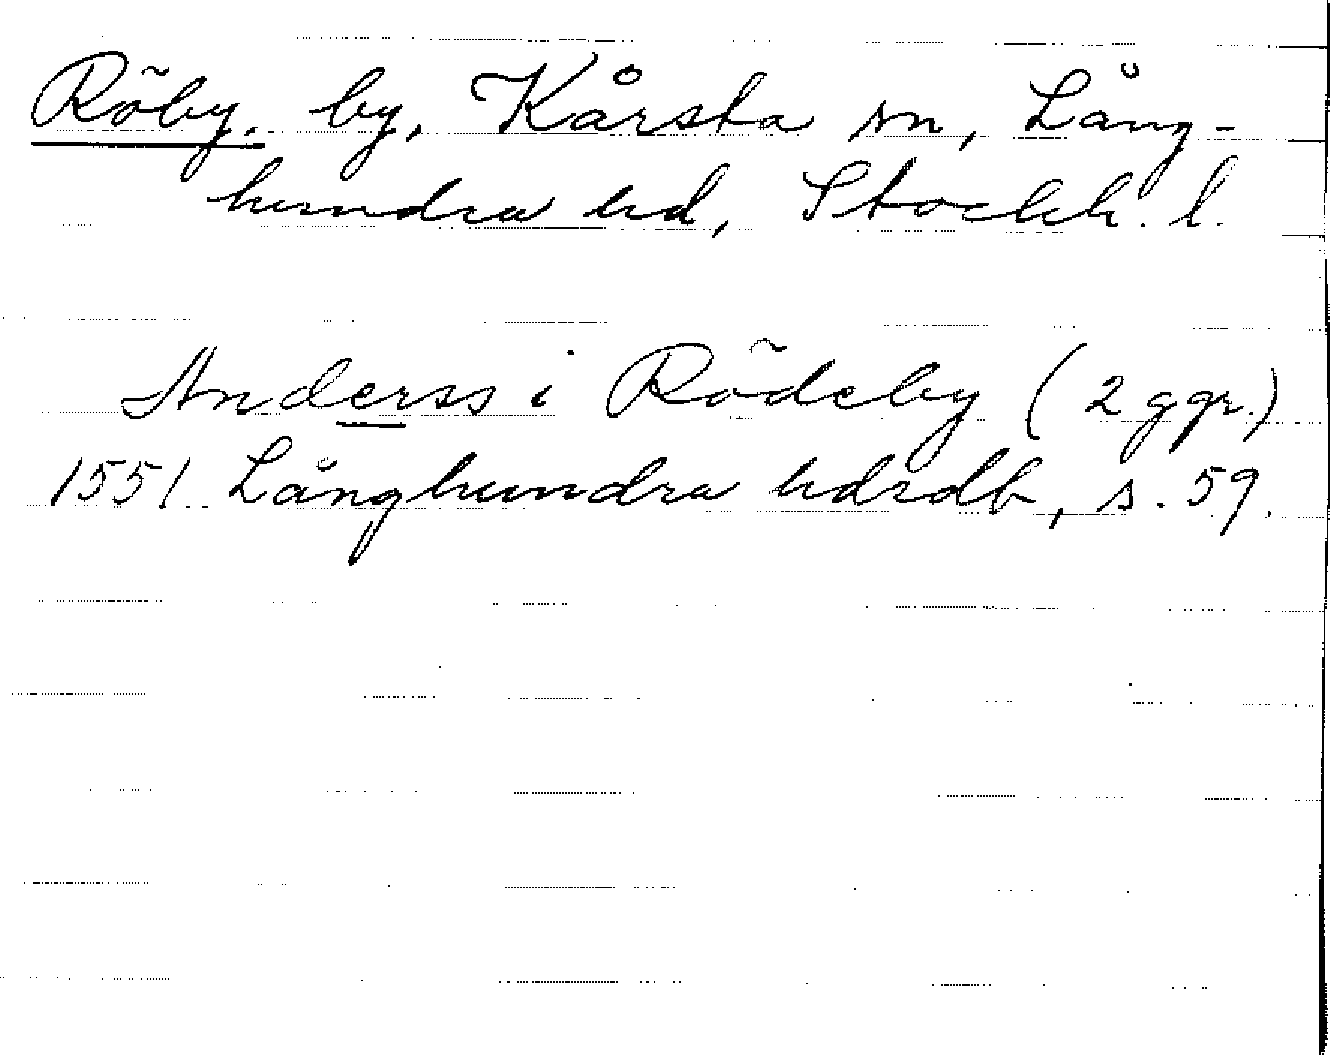 Röby, by, Kårsta sn, Lång-
hundra hd, Stockh. l.
Anderss i Rödeby (2 ggr.)
1551 Långhundra hdrdb, s. 59.